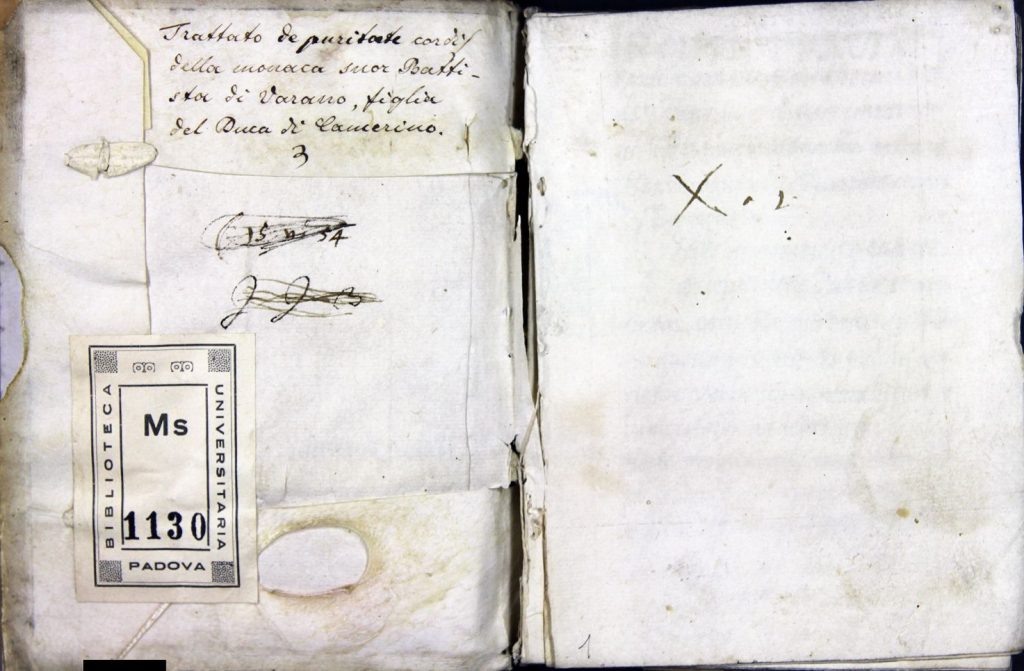 Trattato de puritate cordis
della monaca suor Batti-
sta di Varano, figlia
del Duca di Camerino.
3
15 54
BIBLIOTECA
UNIVERSITARIA
PADOVA
Ms
1130
X. 2
1